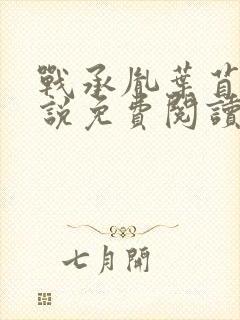 戰承胤葉苜
說免費閱讀
七月開